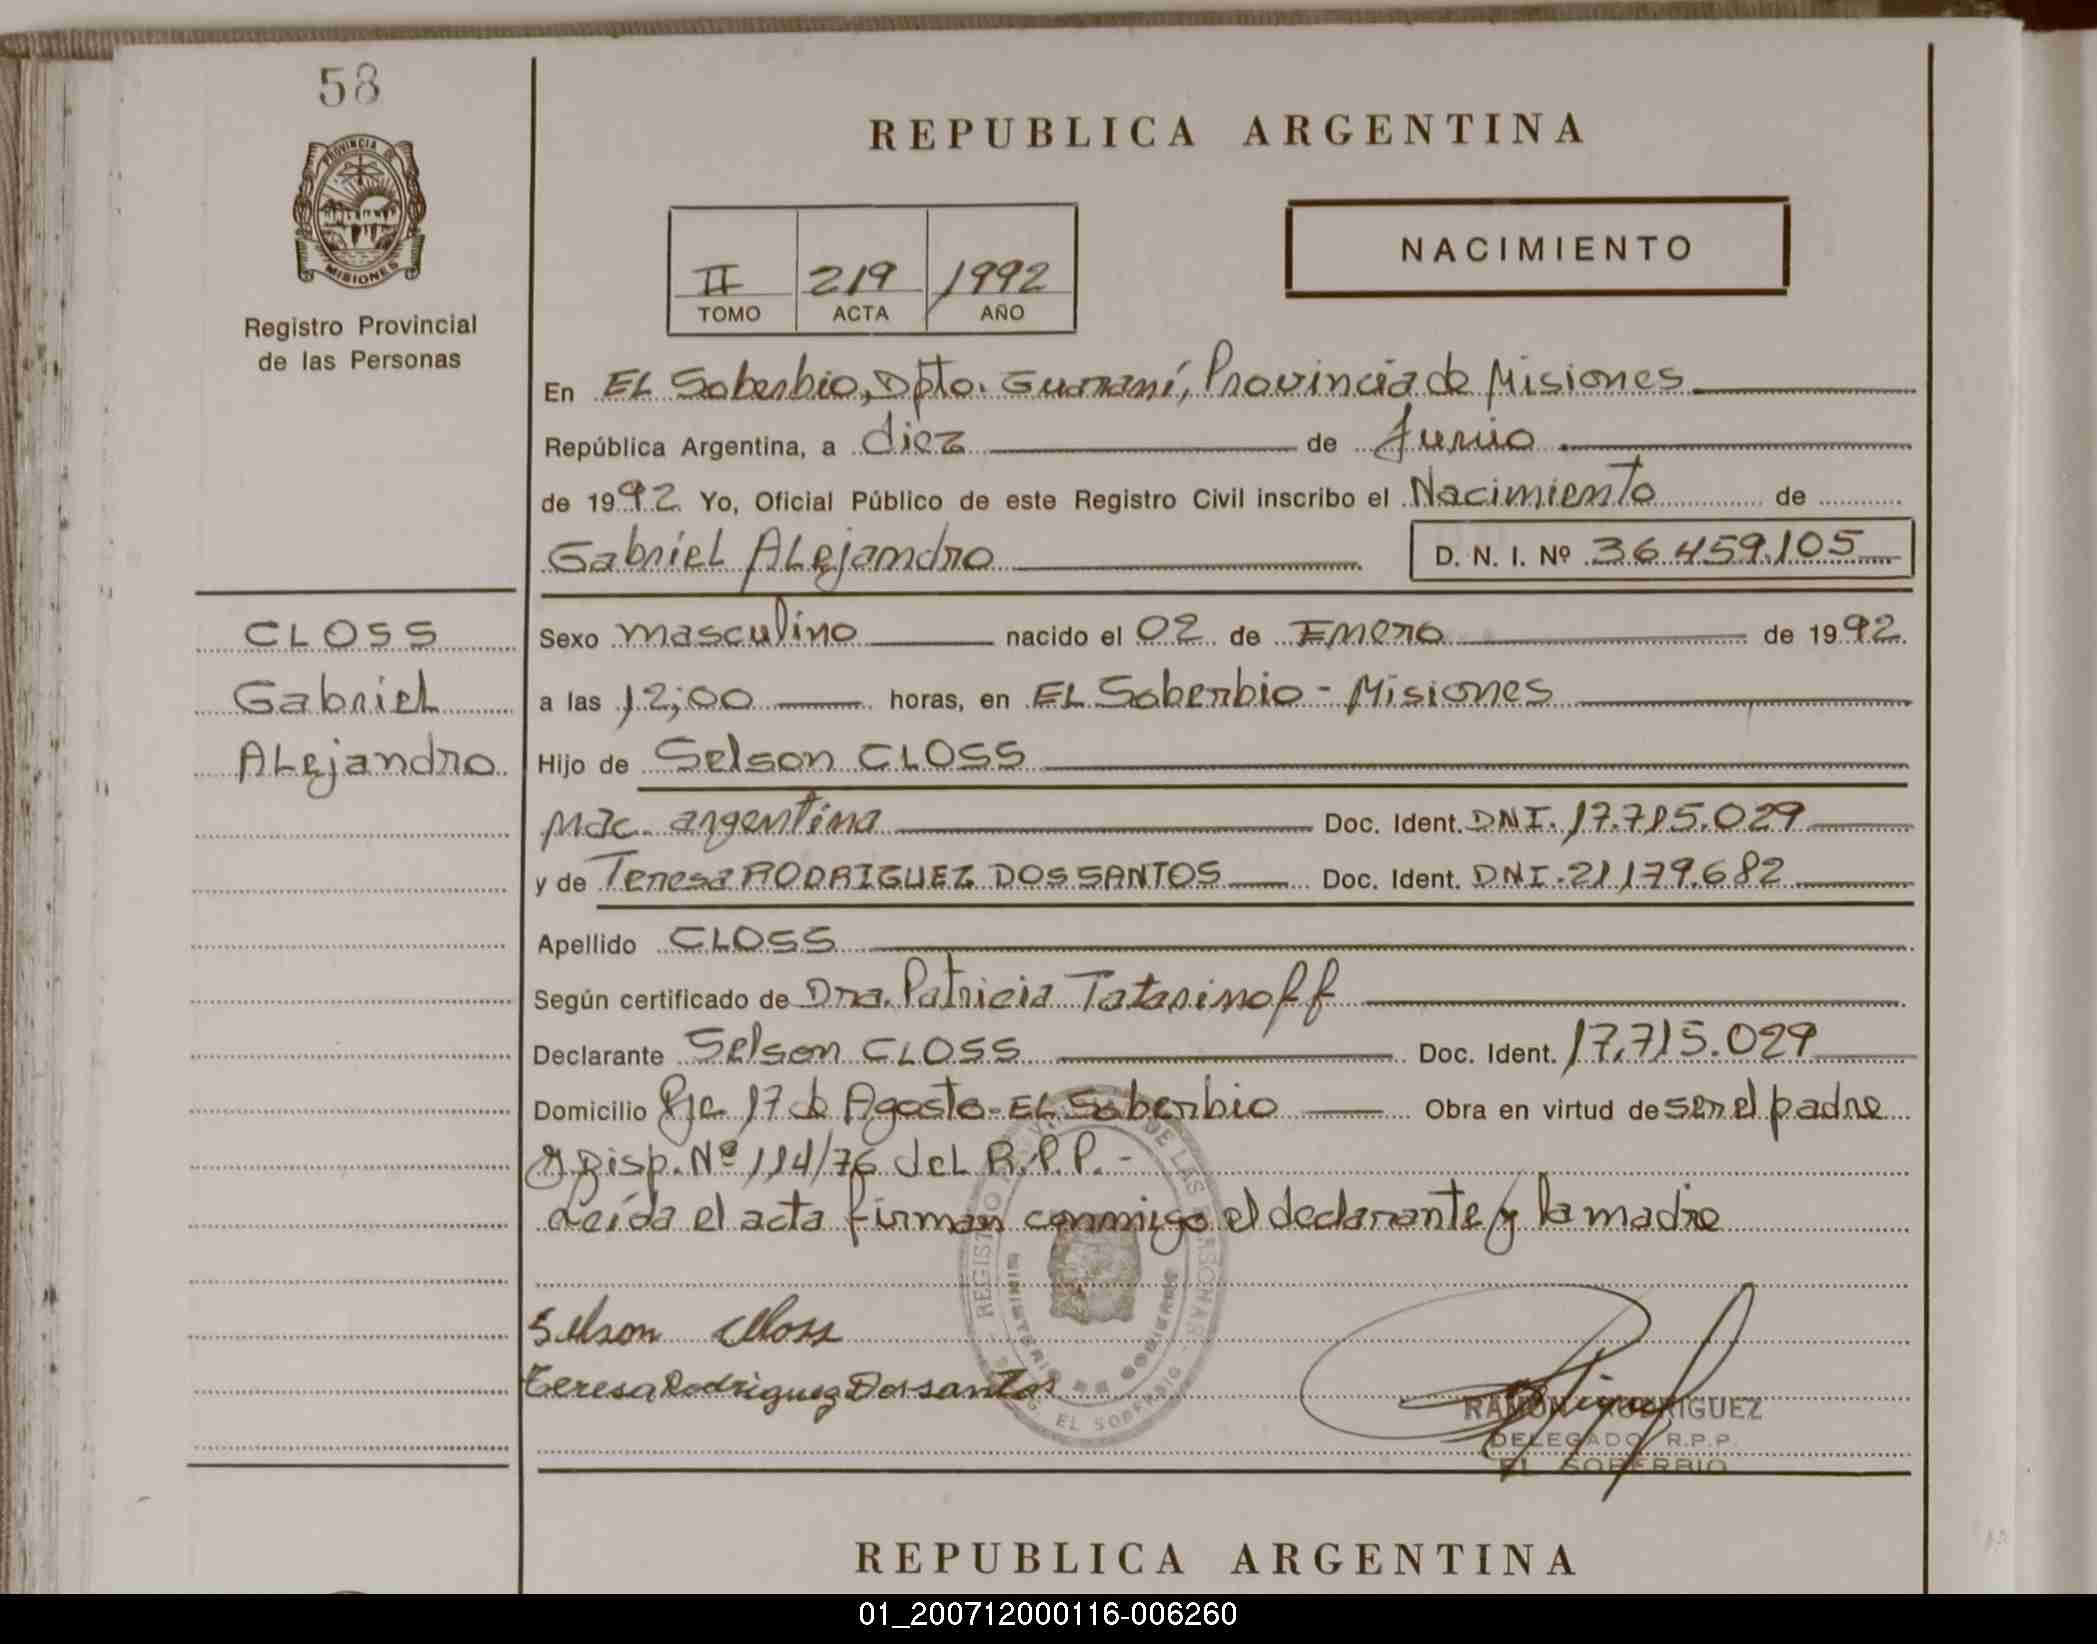 58
PROVINCIA DE
MISIONES
Registro Provincial
de las Personas
REPUBLICA ARGENTINA
NACIMIENTO
II 219 1992
TOMO ACTA AÑO
En EL Soberbio, Dpto. Guaraní, Provincia de Misiones
República Argentina, a diez de Junio
de 1992 Yo, Oficial Público de este Registro Civil inscribo el Nacimiento de
Gabriel ALejandro D. N. I. Nº 36.459.105
CLOSS
Gabriel
ALejandro
Sexo masculino nacido el 02 de Enero de 1992.
a las 12;00 horas, en EL Soberbio - Misiones
Hijo de Selson CLOSS
nac. argentina Doc. Ident. DNI. 17.715.029
y de Teresa RODRIGUEZ DOS SANTOS Doc. Ident. DNI. 21.179.682
Apellido CLOSS
Según certificado de Dra. Patricia Tatarinoff
Declarante Selson CLOSS Doc. Ident. 17.715.029
Domicilio Pje 17 de Agosto - EL Soberbio Obra en virtud de ser el padre
y Disp. Nº 114/76 del R.P.P. -
Leída el acta firman conmigo el declarante y la madre
Selson Closs
Teresa Rodriguez Dos santos
REGISTRO DE LAS PERSONAS
MINISTERIO DE GOBIERNO
EL SOBERBIO
RAMON RODRIGUEZ
DELEGADO R.P.P.
EL SOBERBIO
REPUBLICA ARGENTINA
01_200712000116-006260